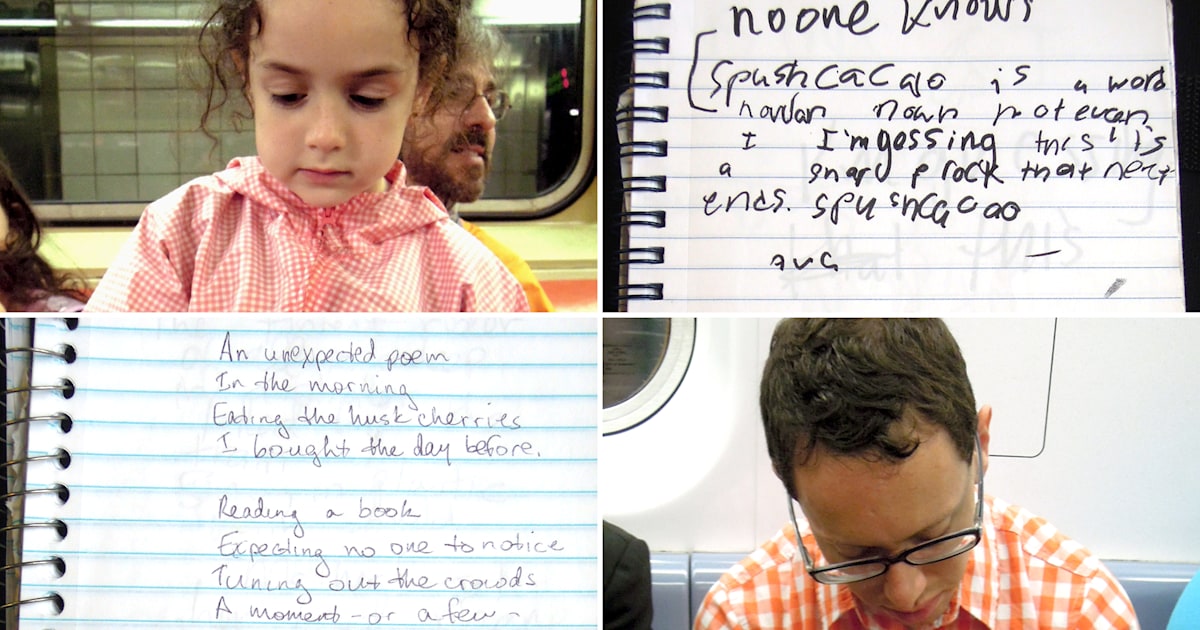 no one knows
Spushcacao is a word
nowon nown not even
I I'm gessing this is
a
that
ends. spushcacao
ava
An unexpected poem
In the morning
Eating the husk cherries
I bought the day before.
Reading a book
Expecting no one to notice
Tuning out the crowds
A moment - or a few -